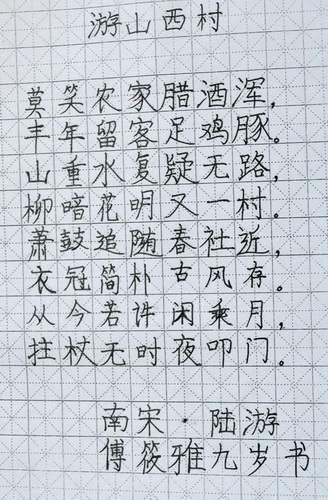 游山西村
莫笑农家腊酒浑，
丰年留客足鸡豚。
山重水复疑无路，
柳暗花明又一村。
萧鼓追随春社近，
衣冠简朴古风存。
从今若许闲乘月，
拄杖无时夜叩门。
南宋·陆游
傅筱雅九岁书